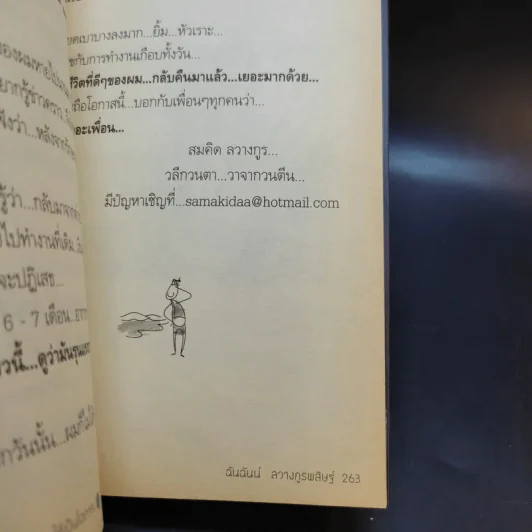 องผมหายไป
ยากรู้ข่าวคราว
ฟังว่า...หลังจาก
รู้ว่า...กลับมาจาก
ไปทำงานที่เดิม
จะปฏิเสธ...
6 - 7 เดือน...อาก
วนี้...ดูว่ามันรุนแรง
กวันนั้น...ผมก็ไม่ได้
เบาบางลงมาก...ยิ้ม...หัวเราะ...
ขกับการทำงานเกือบทั้งวัน...
ชีวิตที่ดีๆของผม...กลับคืนมาแล้ว...เยอะมากด้วย...
ถือโอกาสนี้...บอกกับเพื่อนๆทุกคนว่า...
อะเพื่อน...
สมคิด ลวางกูร...
วลีกวนตา...วาจากวนตีน...
มีปัญหาเชิญที่...samakidaa@hotmail.com
ฉันฉันน์ ลวางกูรพสิษฐ์ 263